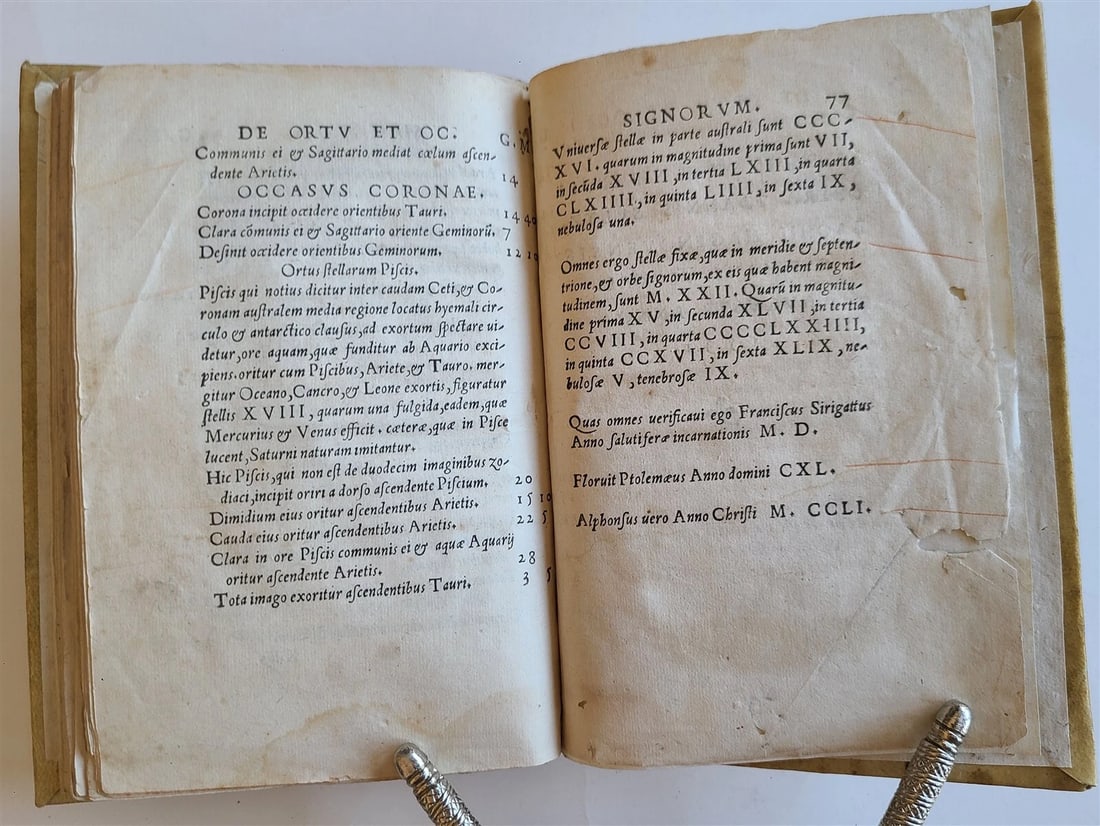 DE ORTV ET OC.
G. M
Communis ei & Sagittario mediat cœlum ascen-
dente Arietis. 14
OCCASVS CORONAE.
Corona incipit occidere orientibus Tauri. 14 4
Clara cõmunis ei & Sagittario oriente Geminorũ. 7
Desinit occidere orientibus Geminorum. 12
Ortus stellarum Piscis.
Piscis qui notius dicitur inter caudam Ceti, & Co-
ronam australem media regione locatus hyemali cir-
culo & antarctico clausus, ad exortum spectare ui-
detur, ore aquam, quæ funditur ab Aquario exci-
piens. oritur cum Piscibus, Ariete, & Tauro. mer-
gitur Oceano, Cancro, & Leone exortis, figuratur
stellis XVIII, quarum una fulgida, eadem, quæ
Mercurius & Venus efficit. cæteræ, quæ in Pisce
lucent, Saturni naturam imitantur.
Hic Piscis, qui non est de duodecim imaginibus zo-
diaci, incipit oriri a dorso ascendente Piscium. 20
Dimidium eius oritur ascendentibus Arietis. 15 10
Cauda eius oritur ascendentibus Arietis. 22 5
Clara in ore Piscis communis ei & aquæ Aquarij
oritur ascendente Arietis. 28
Tota imago exoritur ascendentibus Tauri. 3 5
SIGNORVM. 77
Vniuersæ stellæ in parte australi sunt CCC-
XVI. quarum in magnitudine prima sunt VII,
in secũda XVIII, in tertia LXIII, in quarta
CLXIIII, in quinta LIIII, in sexta IX,
nebulosa una.
Omnes ergo stellæ fixæ, quæ in meridie & septen-
trione, & orbe signorum, ex eis quæ habent magni-
tudinem, sunt M. XXII. Quarũ in magnitu-
dine prima XV, in secunda XLVII, in tertia
CCVIII, in quarta CCCCLXXIIII,
in quinta CCXVII, in sexta XLIX, ne-
bulosæ V, tenebrosæ IX.
Quas omnes uerificaui ego Franciscus Sirigattus
Anno salutiferæ incarnationis M. D.
Floruit Ptolemæus Anno domini CXL.
Alphonsus uero Anno Christi M. CCLI.